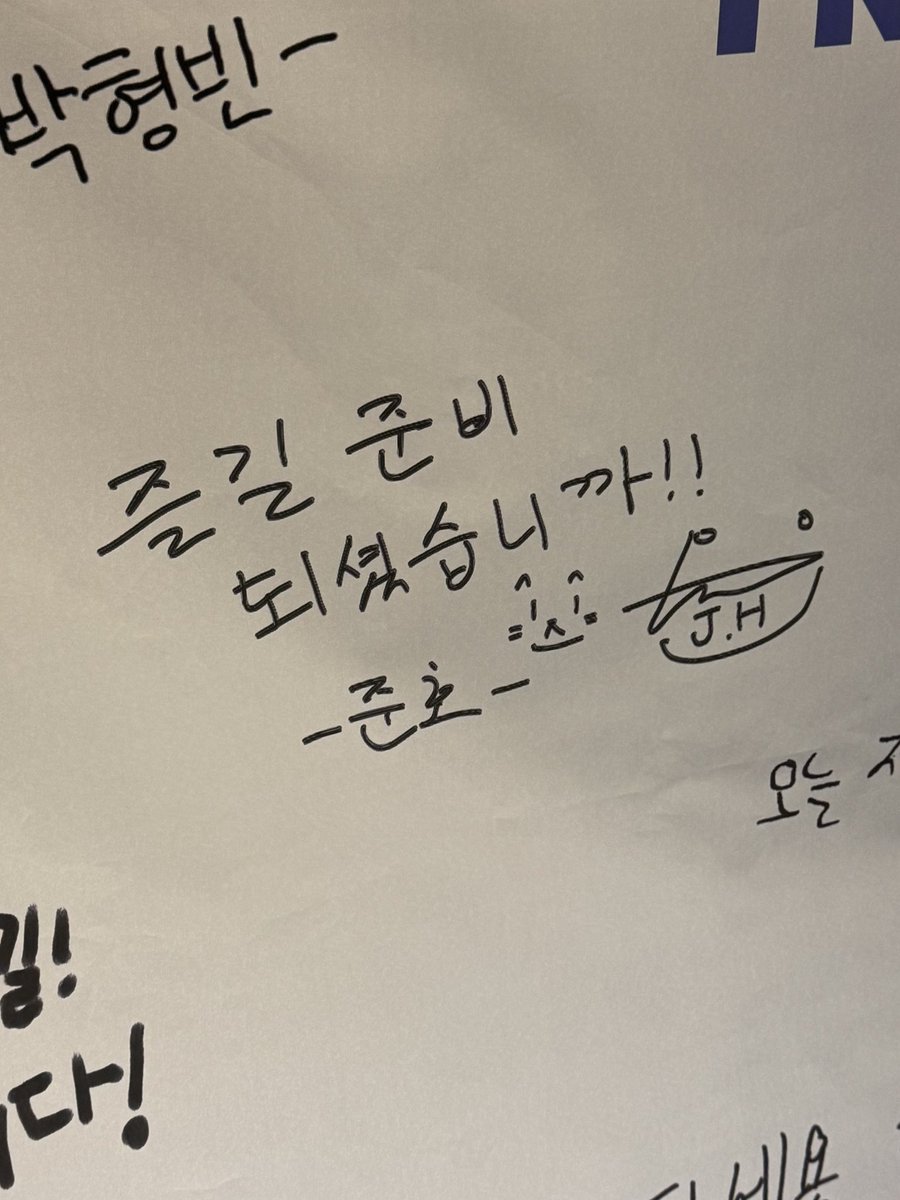 박형빈-
즐길 준비
되셨습니까!!
J.H
-준호-
오늘
길!
다!
세요